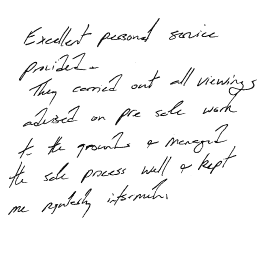 Excellent personal service
provided.
They carried out all viewings
advised on pre sale work
to the grounds & managed
the sale process well & kept
me regularly informed.